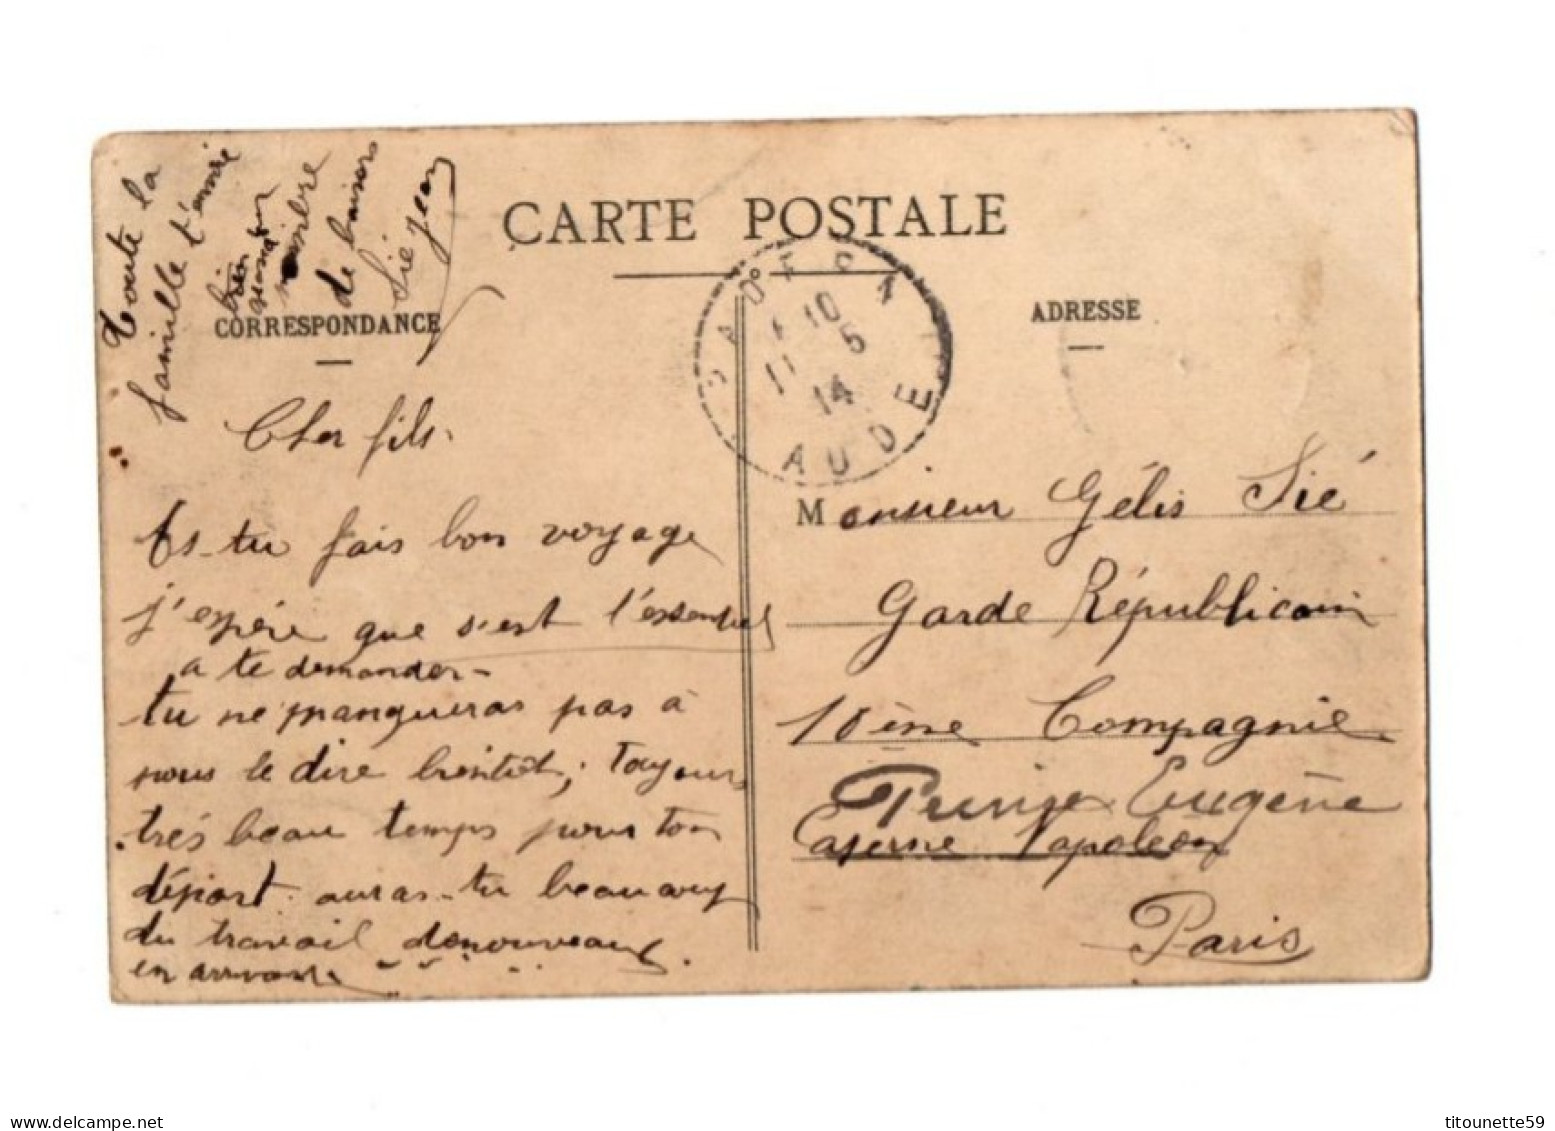 CARTE POSTALE
CORRESPONDANCE
ADRESSE
10
11 5
14
AUDE
Toute la
famille t'envoie
bien
nombre
de baisers
Sié Jean
Cher fils.
Es-tu fais bon voyage
j'espére que s'est l'essentiel
a te demander-
tu ne manqueras pas à
nous le dire bientôt, Toujours
trés beau temps pour ton
départ. auras-tu beaucoup
du travail denouveau
en arrivant
Monsieur Gélis Sié
Garde Républicain
10ème Compagnie
Prince Eugène
Caserne Napoléon
Paris
titounette59
www.delcampe.net